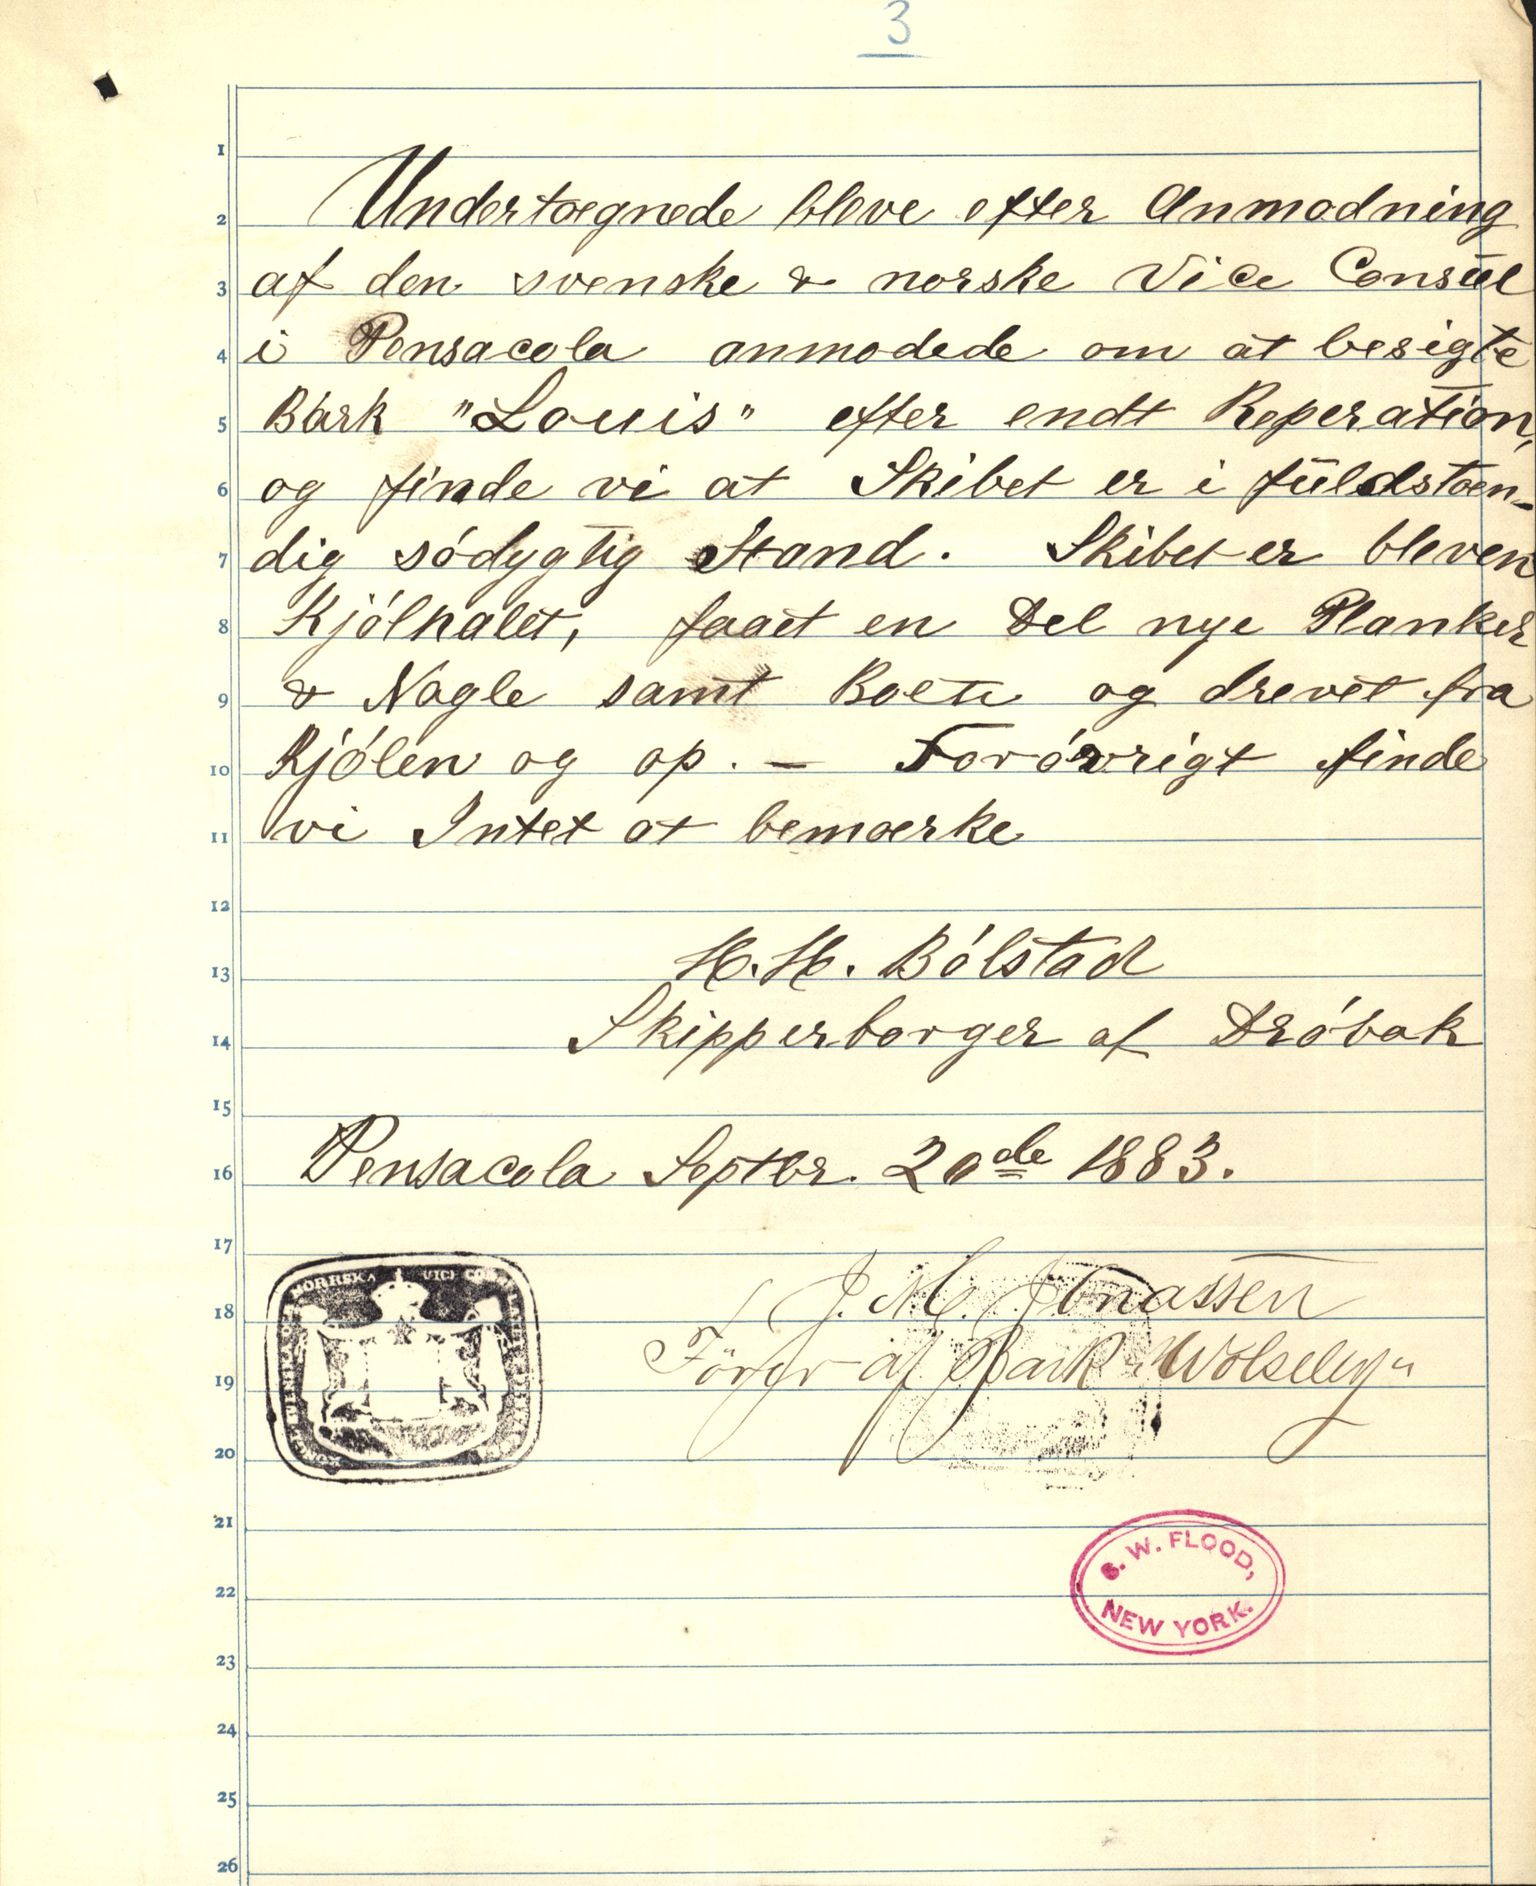 3
1
2 Undertægnede bleve efter Anmodning
3 af den svenske & norske Vice Consul
4 i Pensacola anmodede om at besigte
5 Bark "Louis" efter endt Reperation,
6 og finde vi at Skibet er i fuldstæn-
7 dig sódygtig Stand. Skibet er bleven
8 Kjólhalet, faaet en Del nye Planker
9 & Nagle samt og drevet fra
10 Kjólen og op. — Foróvrigt finde
11 vi Intet at bemærke
12
13 H. H. Bólstad
14 Skipperborger af Dróbak
15
16 Pensacola Septbr. 20de 1883.
17
18 J. M. Jonassen
19 Förer af Bark "Wolseley"
20
NORRSKA VICE
21
S. W. FLOOD,
22
NEW YORK.
23
24
25
26